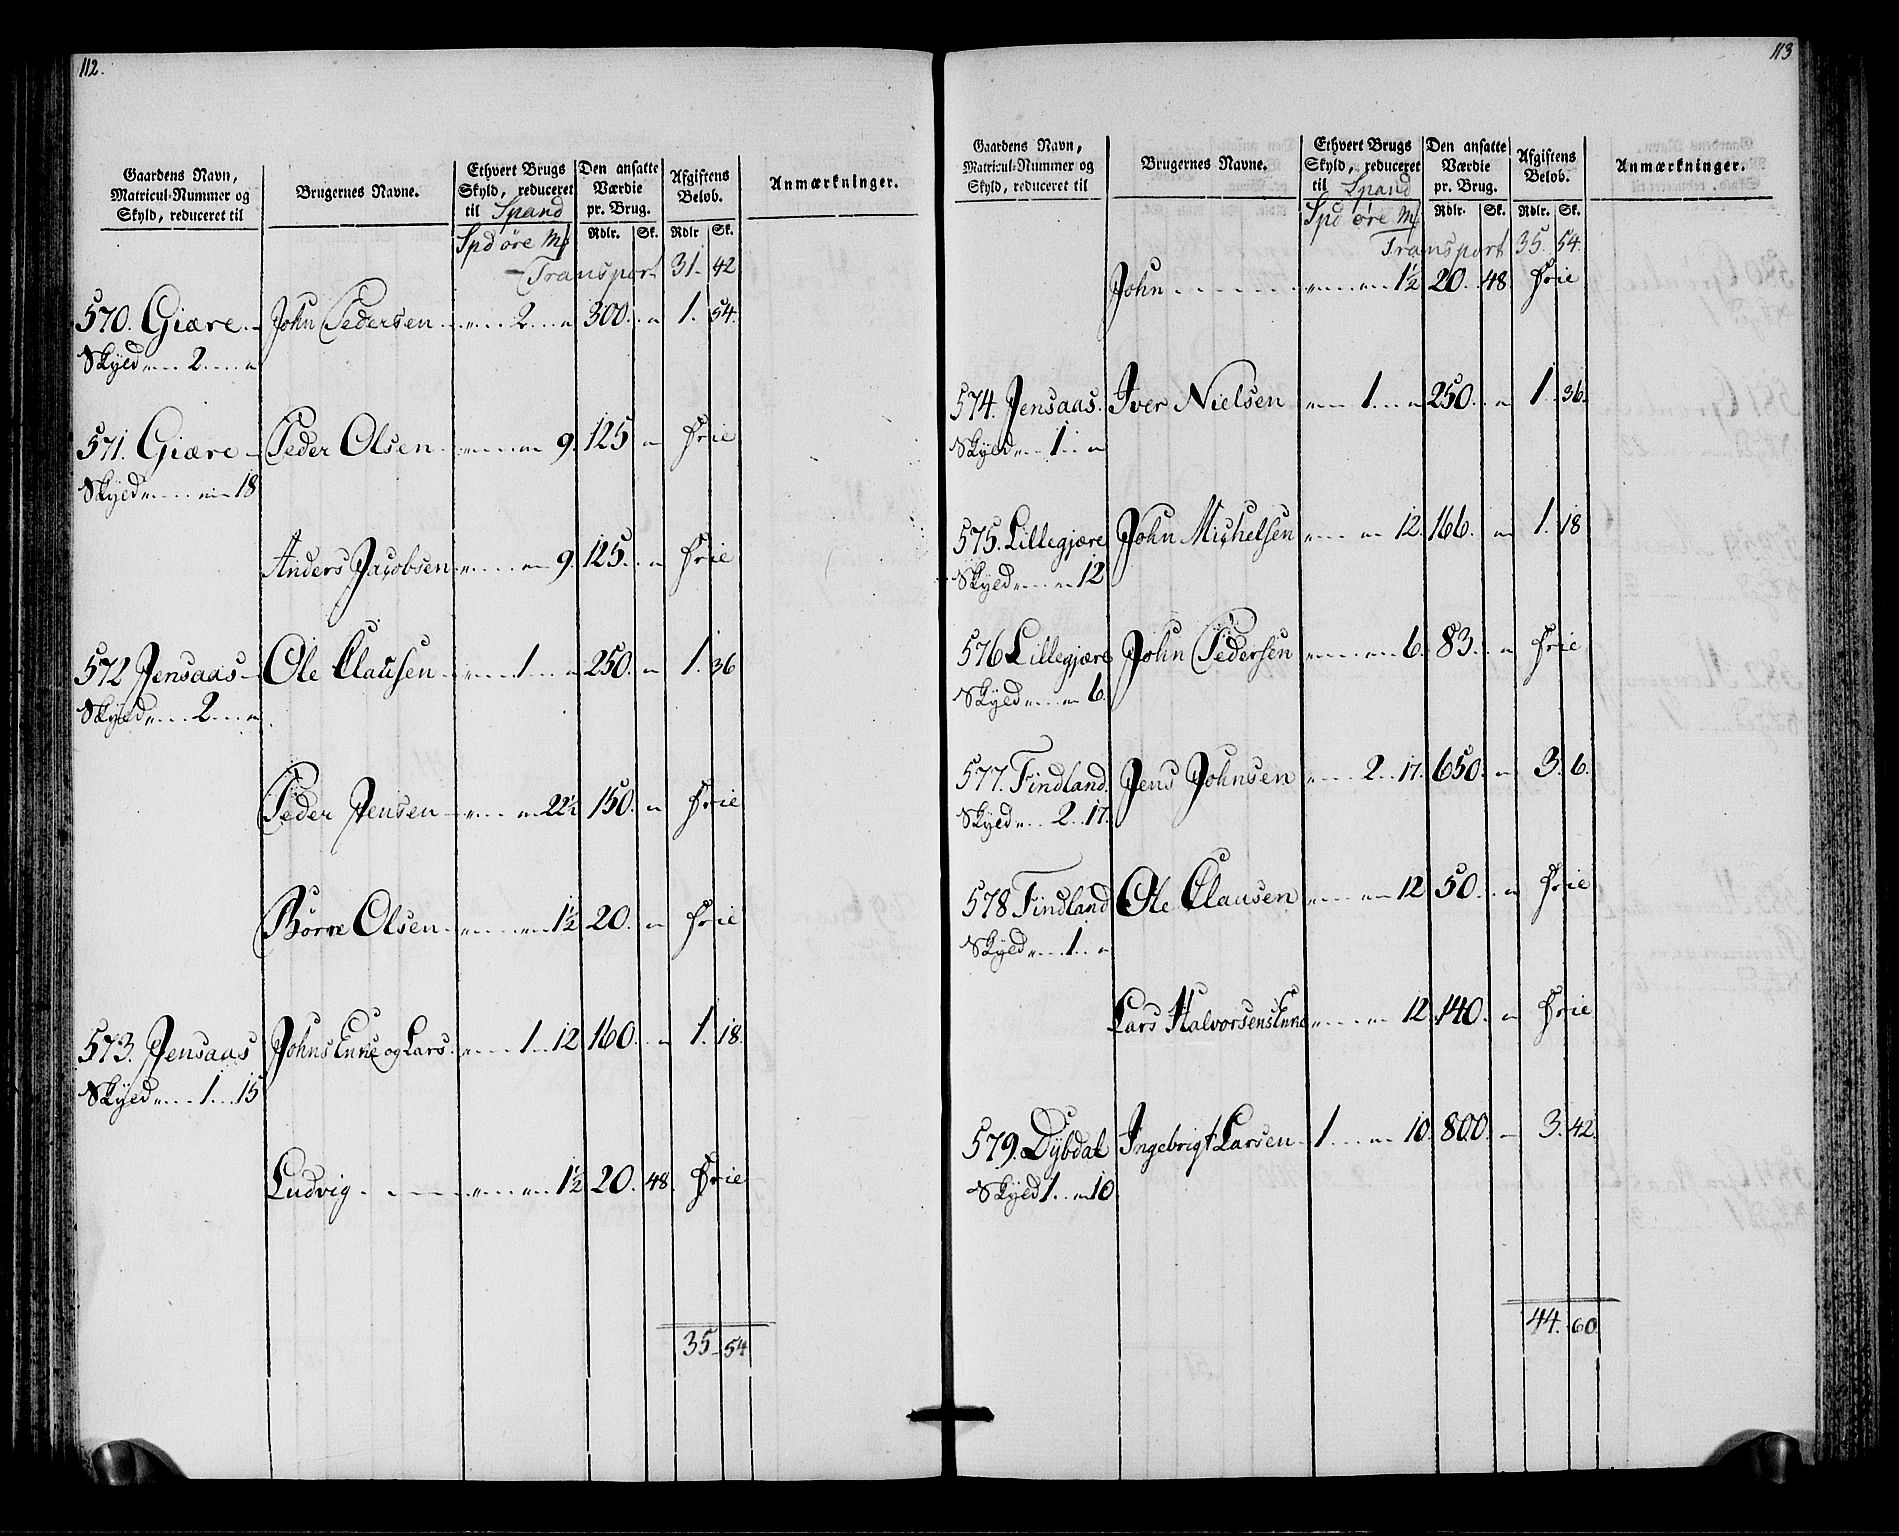 112.
Gaardens Navn, Matricul-Nummer og Skyld, reduceret til | Brugernes Navne. | Ethvert Brugs Skyld, reduceret til Spand | Den ansatte Værdie pr. Brug. | Afgiftens Beløb. | Anmærkninger.
Spd øre M | Rdlr. | Sk. | Rdlr | Sk.
Transport 31 - 42
570. Giære - John Pedersen - „ 2 „ 300. „ 1. 54.
Skyld „ 2 „
571. Giære - Peder Olsen - „ „ 9. 125 „ Frie
Skyld „ „ 18
Anders Jacobsen „ „ 9. 125. „ Frie
572 Jensaas - Ole Clausen - „ 1 „ 250. „ 1. 36
Skyld „ 2 „
Peder Jensen - „ „ 22½ 150. „ Frie
Børre Olsen - „ „ 1½ 20. „ Frie
573. Jensaas Johns Enke og Lars „ 1 12 160. „ 1. 18.
Skyld „ 1 15
Ludvig „ „ 1½ 20. 48. Frie
35 - 54
113
Gaardens Navn, Matricul-Nummer og Skyld, reduceret til | Brugernes Navne. | Ethvert Brugs Skyld, reduceret til Spand | Den ansatte Værdie pr. Brug. | Afgiftens Beløb. | Anmærkninger.
Spd øre M | Rdlr. | Sk. | Rdlr. | Sk.
Transport 35. 54.
John „ „ 1½ 20. 48 Frie
574. Jensaas. Iver Nielsen „ 1 „ 250. „ 1. 36.
Skyld „ 1 „
575. Lillegjære John Michelsen „ „ 12. 166. „ 1. 18
Skyld „ „ 12
576 Lillegjære John Pedersen „ „ 6. 83. „ Frie
Skyld „ „ 6.
577. Findland. Jens Johnsen „ 2 17. 650. „ 3. 6.
Skyld „ 2 17.
578 Findland Ole Clausen „ „ 12 50. „ Frie
Skyld „ 1 „
Lars Halvorsens Enke „ „ 12. 140. „ Frie
579. Dybdal Ingebrigt Larsen 1 „ 10. 800. - 3. 42.
Skyld 1 „ 10
44. 60